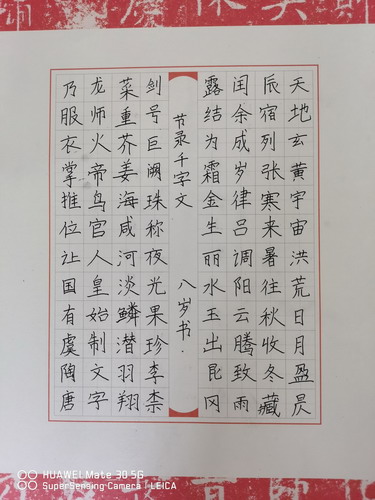 天地玄黄宇宙洪荒日月盈昃
辰宿列张寒来暑往秋收冬藏
闰余成岁律吕调阳云腾致雨
露结为霜金生丽水玉出昆冈
节录千字文 八岁书.
剑号巨阙珠称夜光果珍李柰
菜重芥姜海咸河淡鳞潜羽翔
龙师火帝鸟官人皇始制文字
乃服衣掌推位让国有虞陶唐
HUAWEI Mate 30 5G
SuperSensing Camera | LEICA